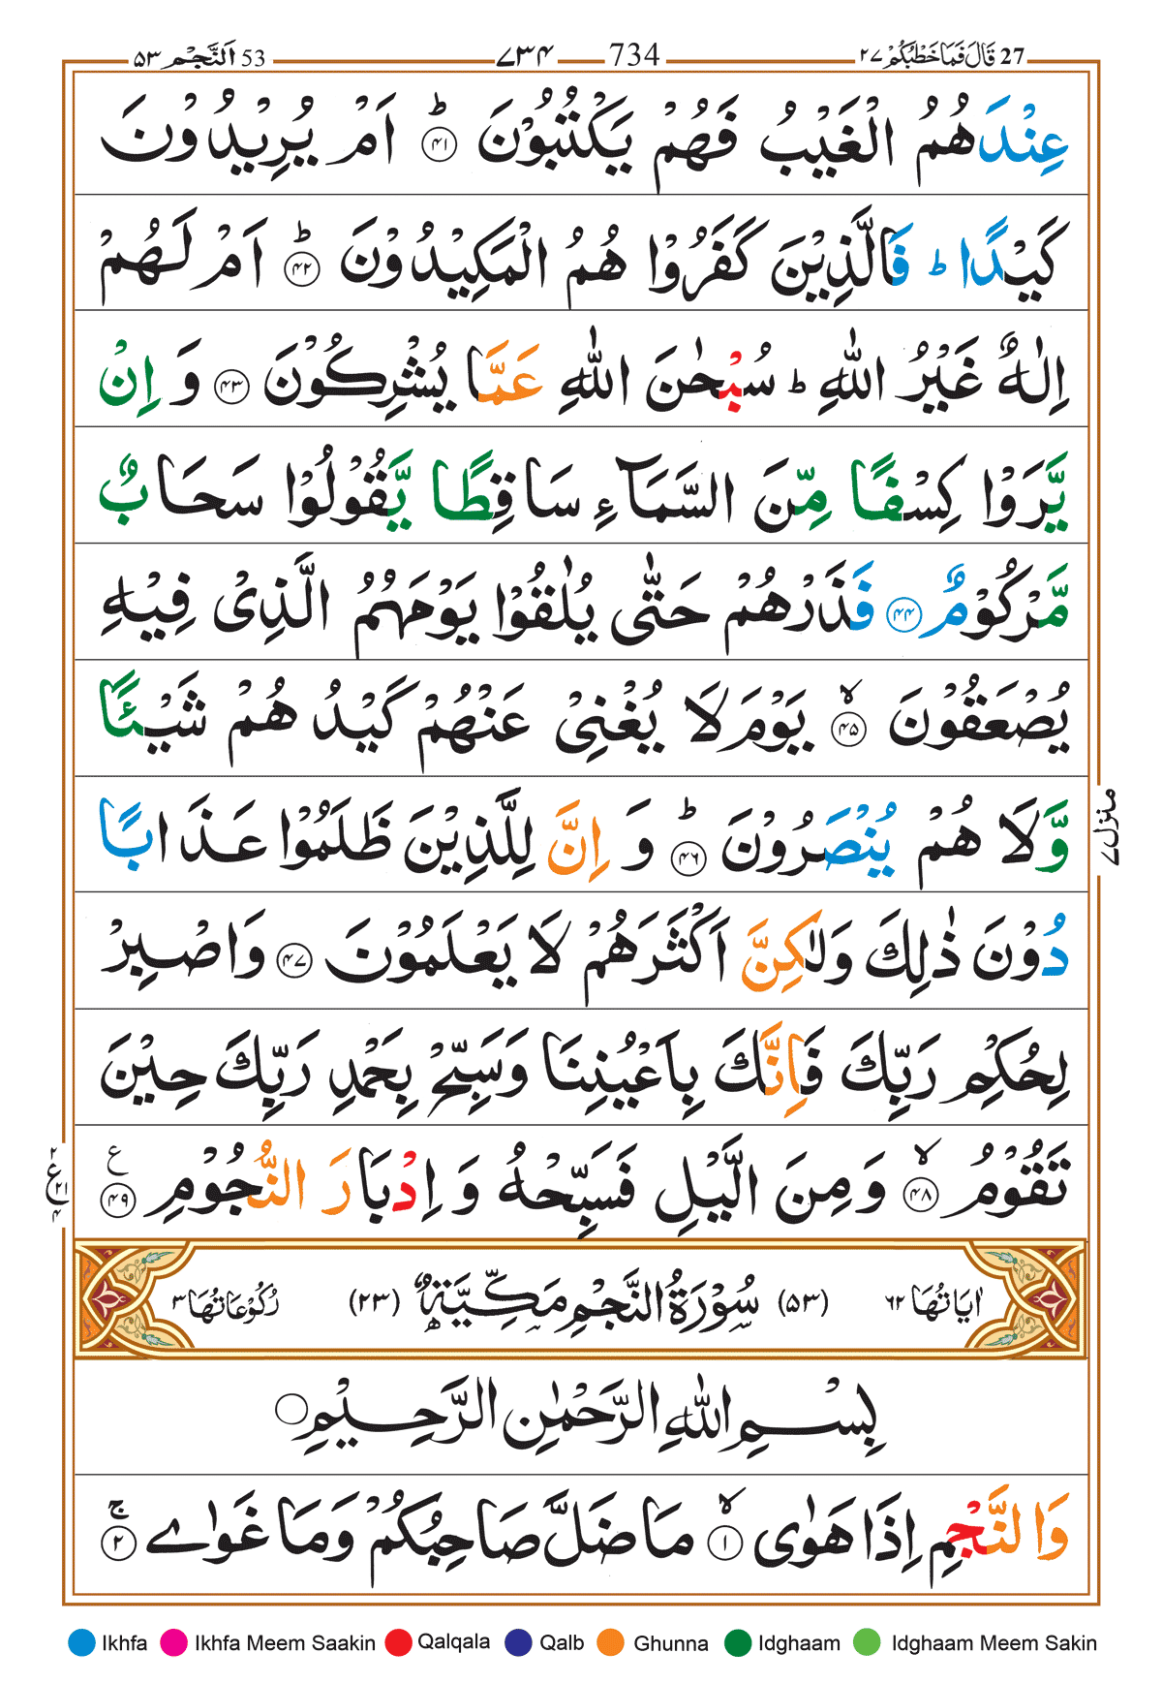 27 قَالَ فَمَا خَطْبُكُمْ ٢٧ 734 ٧٣٤ اَلنَّجْم ٥٣ 53
عِنْدَهُمُ الْغَيْبُ فَهُمْ يَكْتُبُوْنَ ؕ ۴۱ اَمْ يُرِيْدُوْنَ
كَيْدًا ؕ فَالَّذِيْنَ كَفَرُوْا هُمُ الْمَكِيْدُوْنَ ؕ ۴۲ اَمْ لَهُمْ
اِلٰهٌ غَيْرُ اللّٰهِ ؕ سُبْحٰنَ اللّٰهِ عَمَّا يُشْرِكُوْنَ ۴۳ وَ اِنْ
يَّرَوْا كِسْفًا مِّنَ السَّمَآءِ سَاقِطًا يَّقُوْلُوْا سَحَابٌ
مَّرْكُوْمٌ ۴۴ فَذَرْهُمْ حَتّٰى يُلٰقُوْا يَوْمَهُمُ الَّذِىْ فِيْهِ
يُصْعَقُوْنَ ۙ ۴۵ يَوْمَ لَا يُغْنِىْ عَنْهُمْ كَيْدُ هُمْ شَيْئًا
وَّلَا هُمْ يُنْصَرُوْنَ ؕ ۴۶ وَ اِنَّ لِلَّذِيْنَ ظَلَمُوْا عَذَابًا
دُوْنَ ذٰلِكَ وَلٰكِنَّ اَكْثَرَهُمْ لَا يَعْلَمُوْنَ ۴۷ وَاصْبِرْ
لِحُكْمِ رَبِّكَ فَاِنَّكَ بِاَعْيُنِنَا وَسَبِّحْ بِحَمْدِ رَبِّكَ حِيْنَ
تَقُوْمُ ۙ ۴۸ وَمِنَ الَّيْلِ فَسَبِّحْهُ وَ اِدْبَارَ النُّجُوْمِ ۴۹ ع
اٰيَاتُهَا ۶۲ (۵۳) سُوْرَةُ النَّجْمِ مَكِّيَّةٌ (۲۳) رُكُوْعَاتُهَا ۳
بِسْمِ اللّٰهِ الرَّحْمٰنِ الرَّحِيْمِ
وَالنَّجْمِ اِذَا هَوٰى ۙ ۱ مَا ضَلَّ صَاحِبُكُمْ وَمَا غَوٰى ۚ ۲
منزل ۷
۲ ع ۲۱ ۴
Ikhfa Ikhfa Meem Saakin Qalqala Qalb Ghunna Idghaam Idghaam Meem Sakin